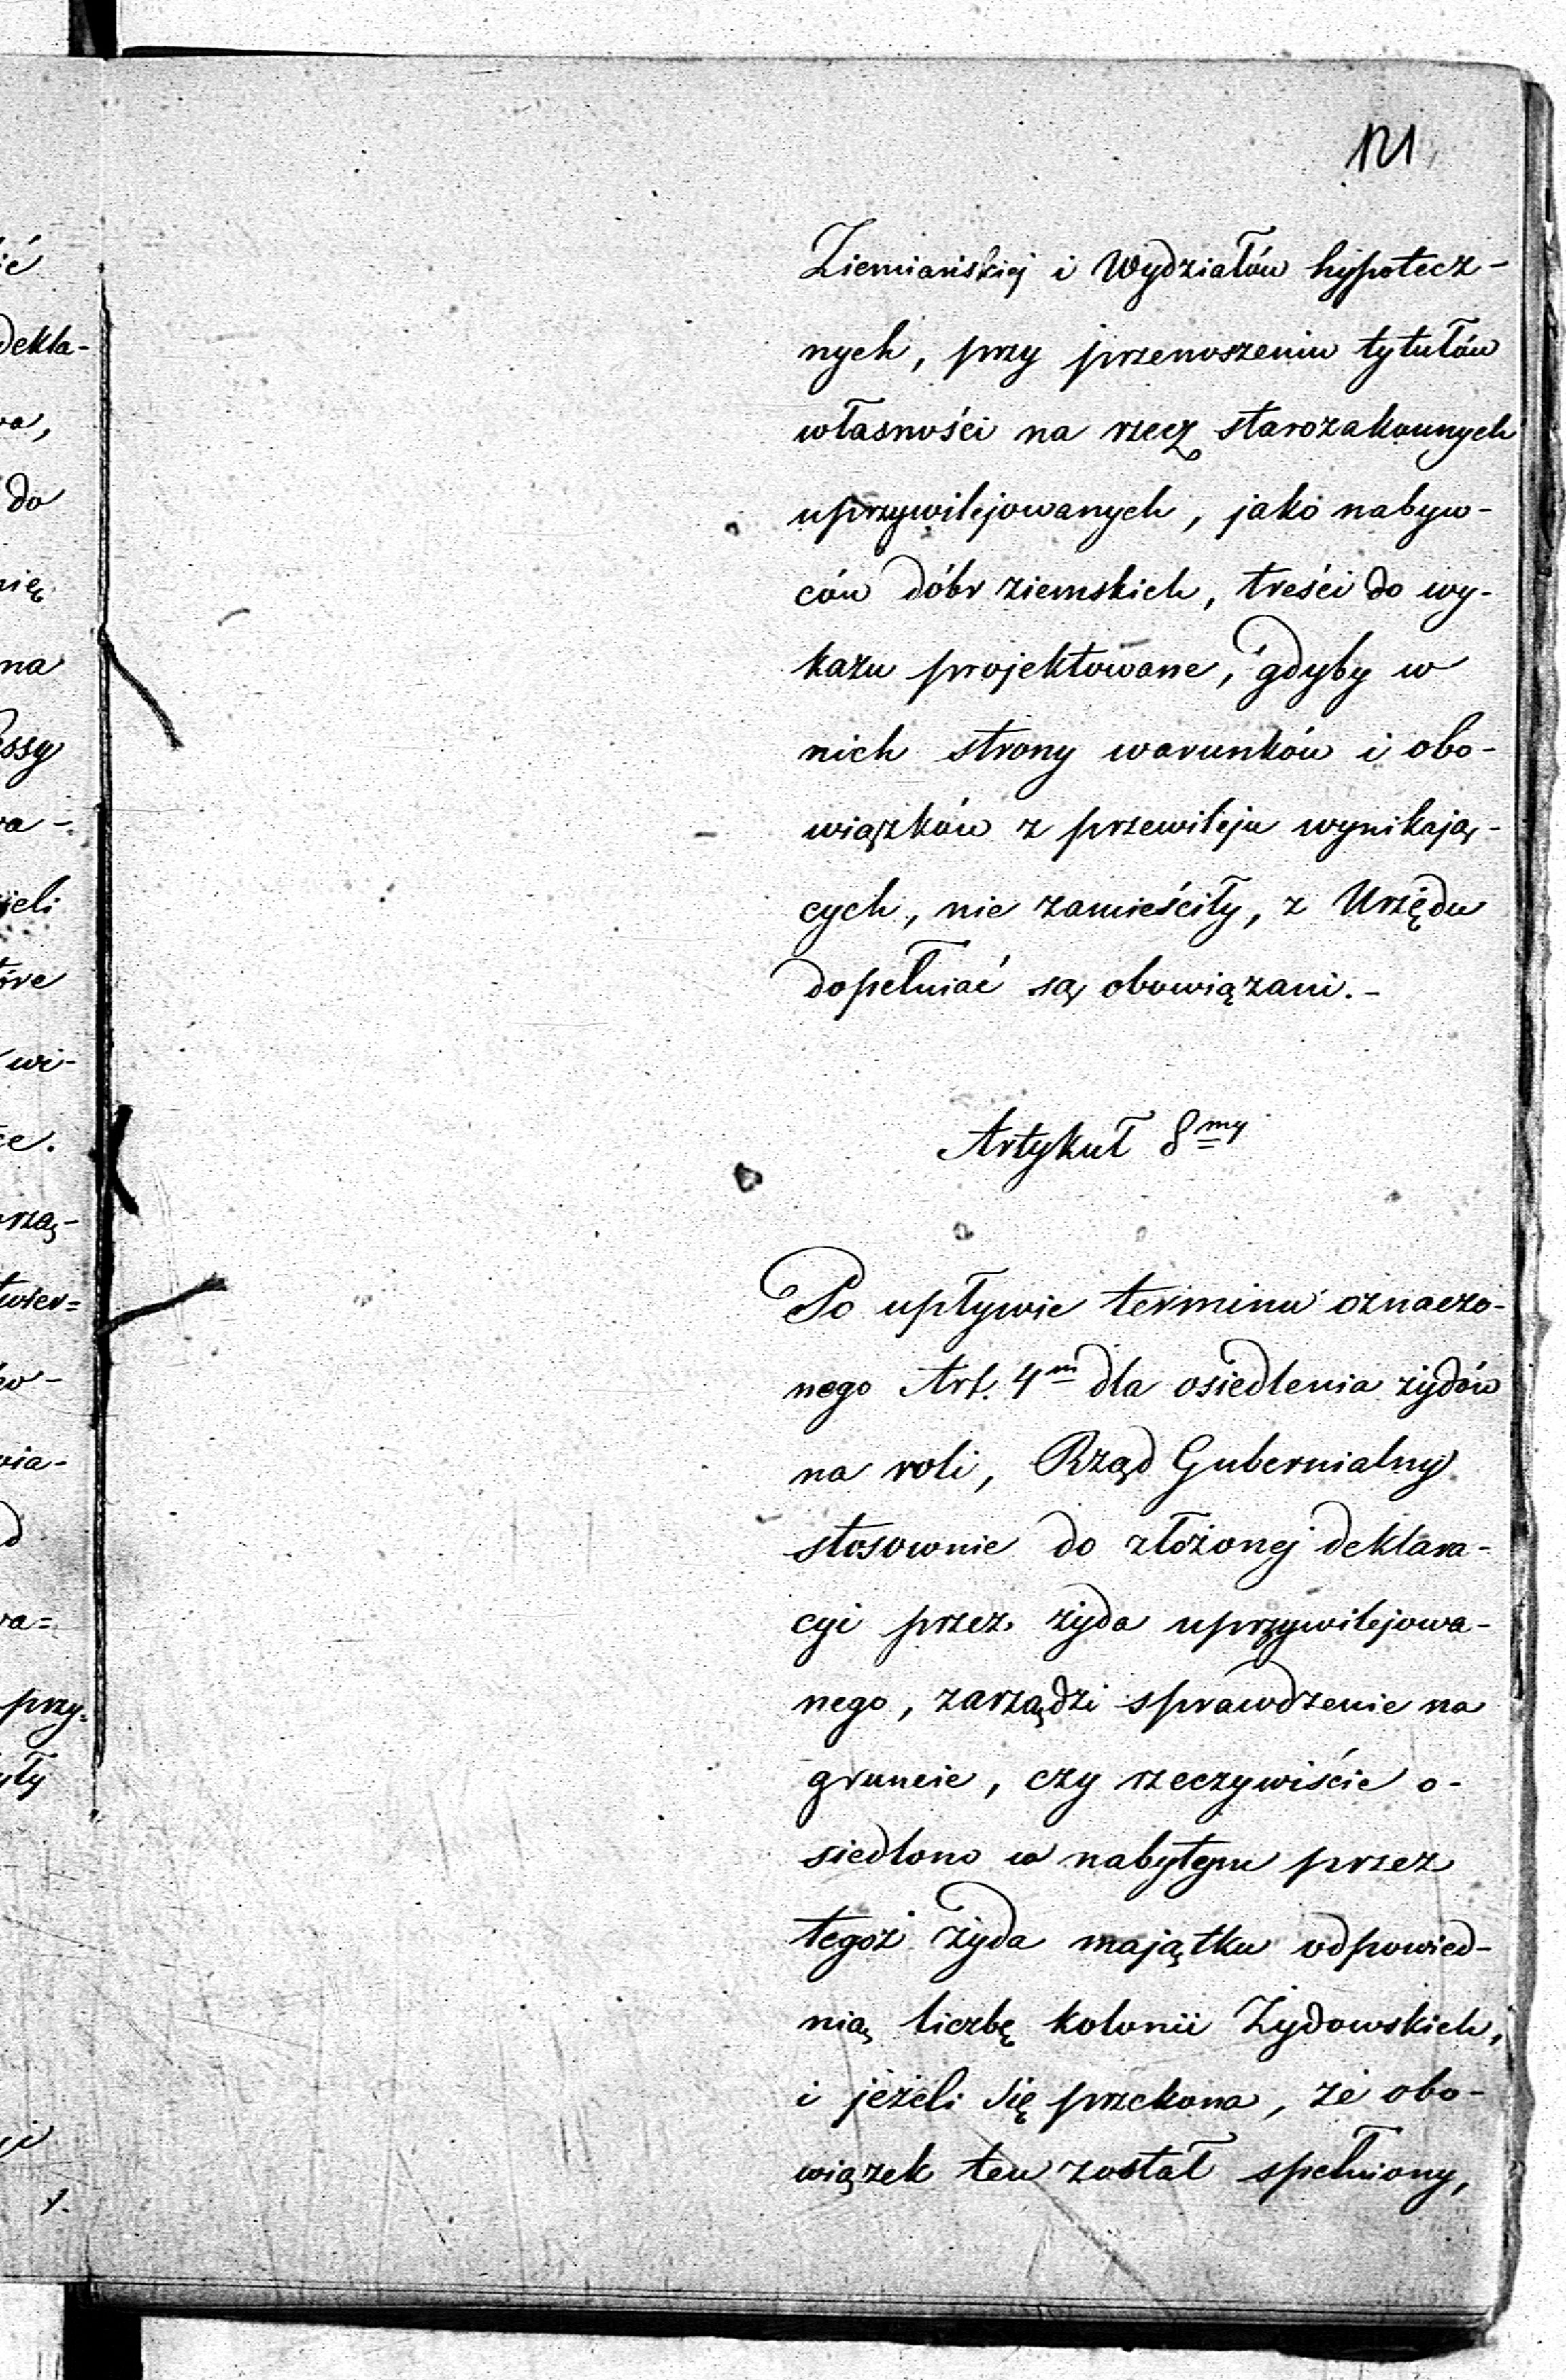 121
Ziemiańskiej i Wydziałów hypotecz-
nych, przy przenoszeniu tytułów
własności na rzecz starozakonnych
uprzywilejowanych, jako nabyw-
ców dóbr ziemskich, treści do wy-
kazu projektowane, gdyby w
nich strony warunków i obo-
wiązków z przewileju wynikają-
cych, nie zamieściły, z Urzędu
dopełniać są obowiązani.-
Artykuł 8my
Po upływie terminu oznaczo-
nego Art. 4m dla osiedlenia żydów
na roli, Rząd Gubernialny
stosownie do złożonej deklara-
cyi przez żyda uprzywilejowa-
nego, zarządzi sprawdzenie na
gruncie, czy rzeczywiście o-
siedlono w nabytym przez
tegoż żyda majątku odpowied-
nią liczbę kolonii Żydowskich,
i jeżeli się przekona, że obo-
wiązek ten został spełniony,